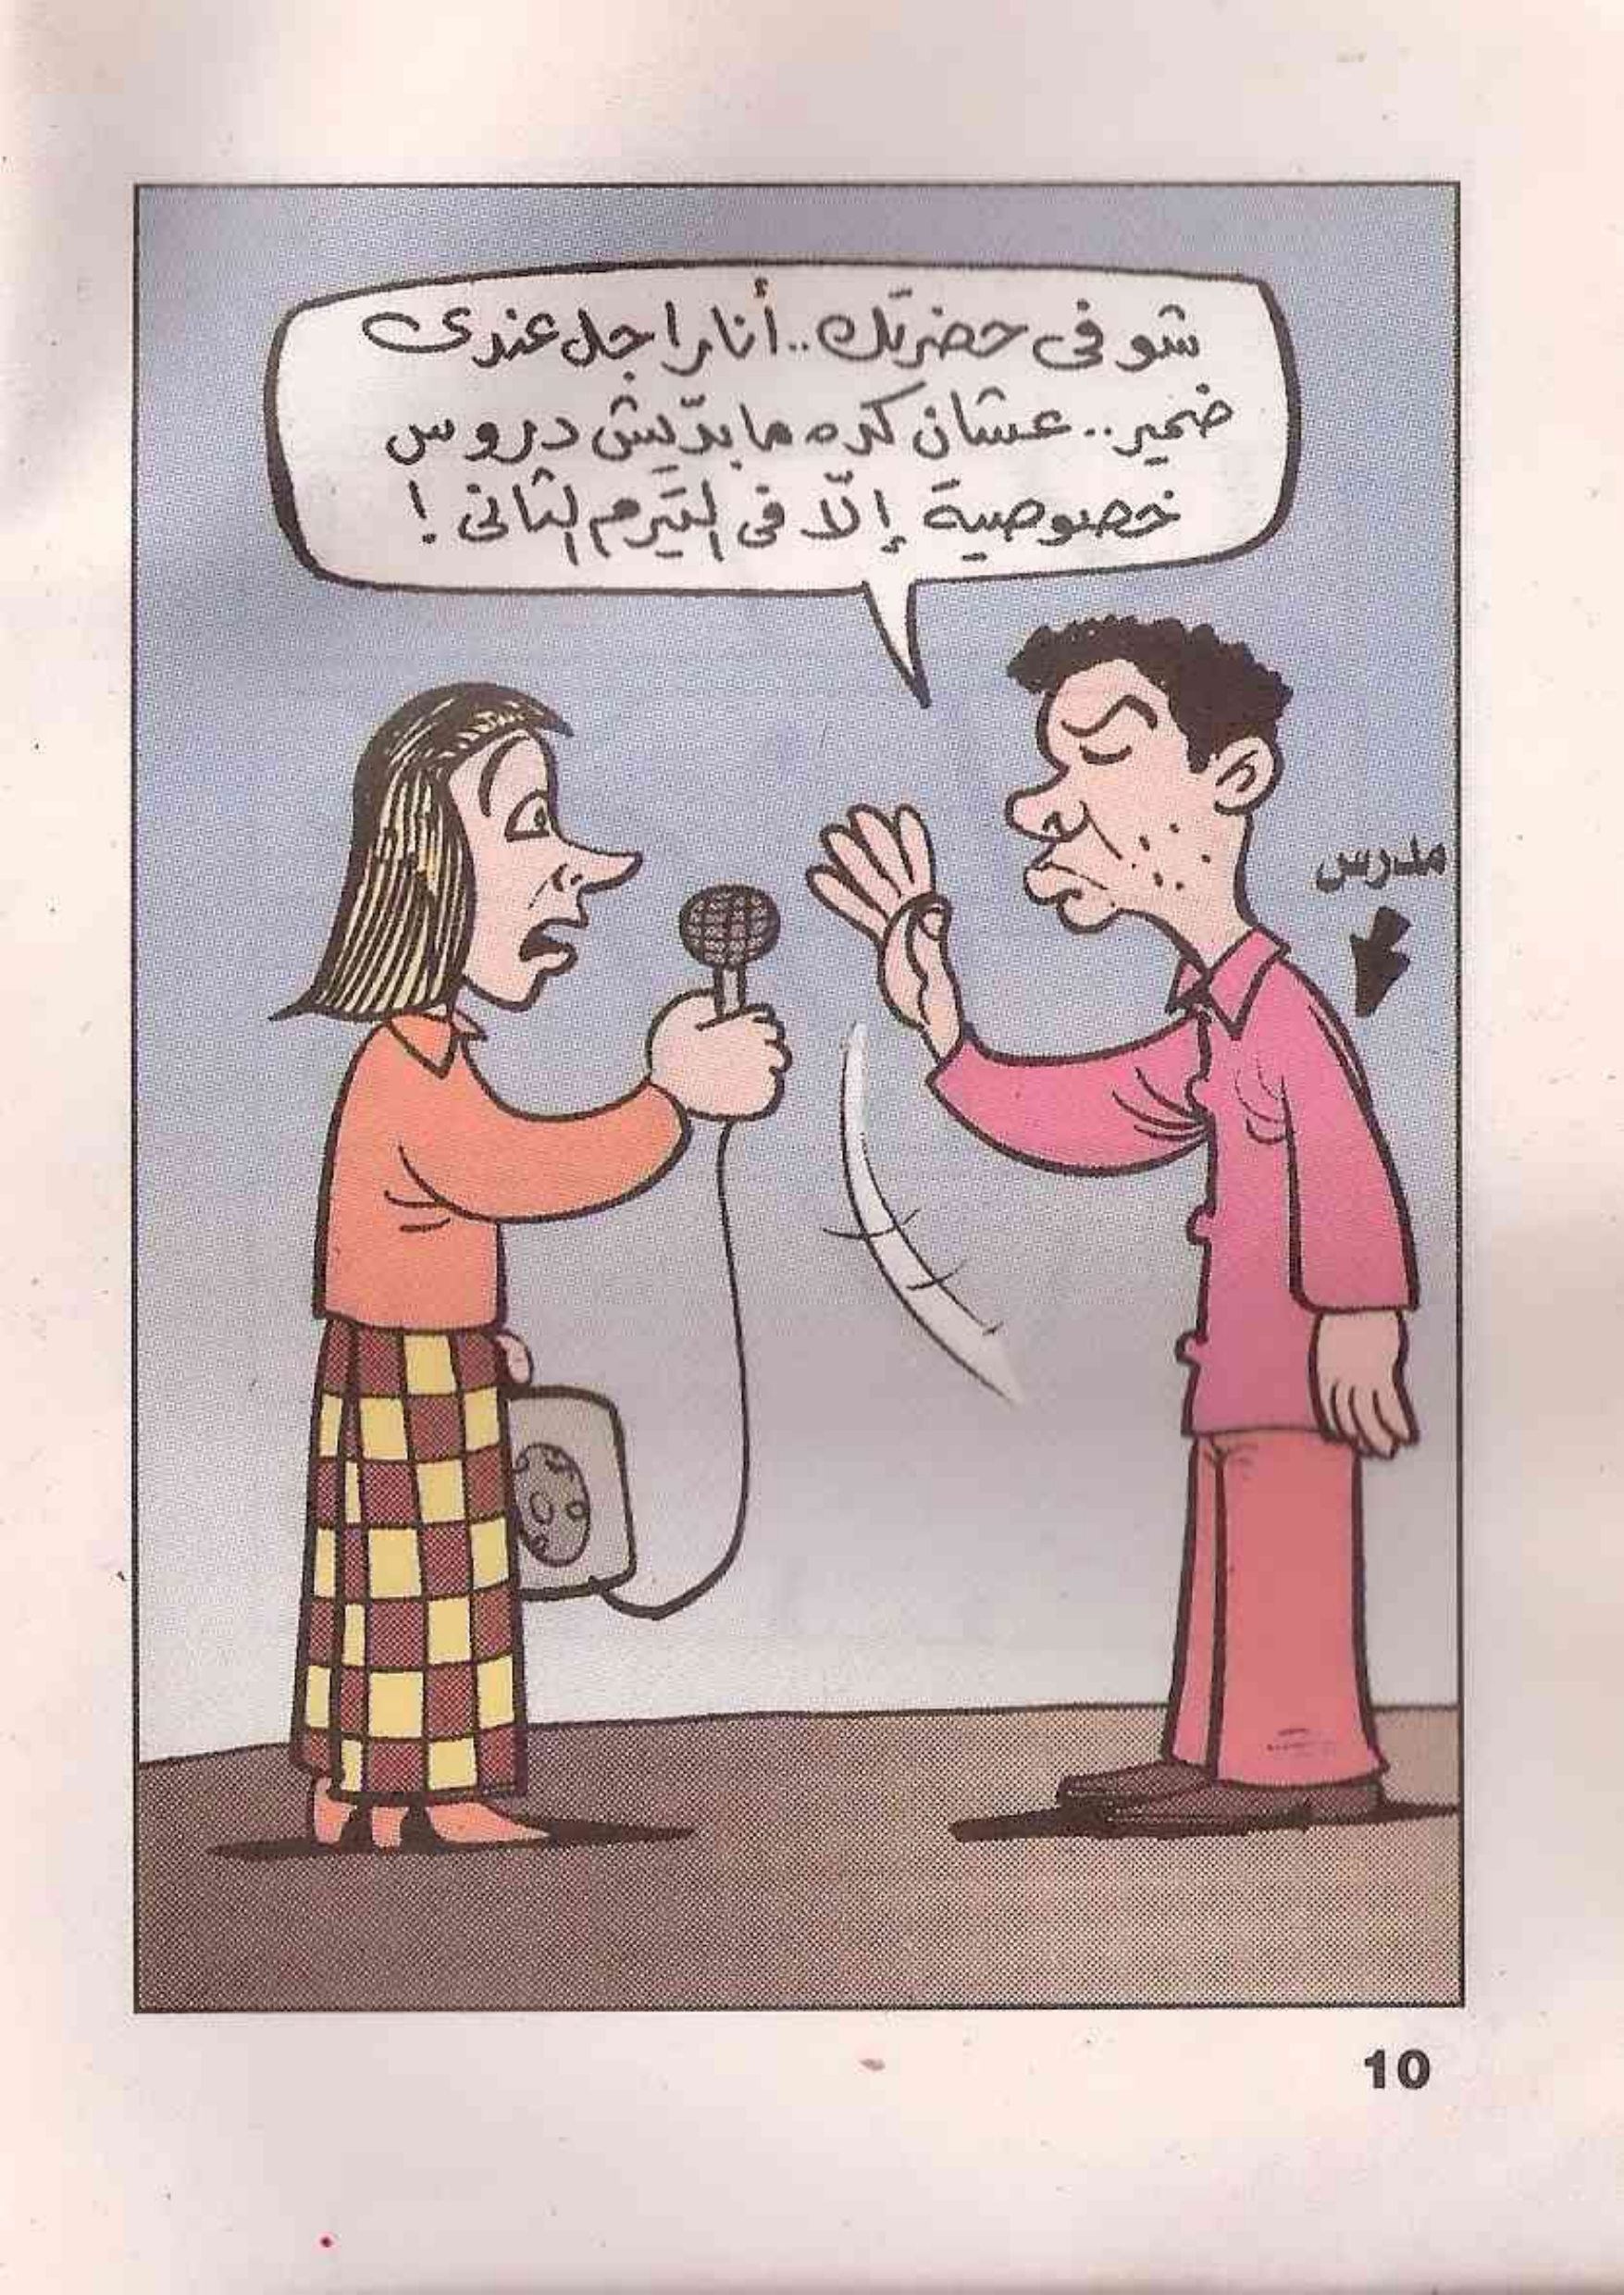 شوفى حضرتك.. أنا راجل عندى
ضمير.. عشان كده ما بدّيش دروس
خصوصية إلّا فى التيرم التانى !
مدرس
10